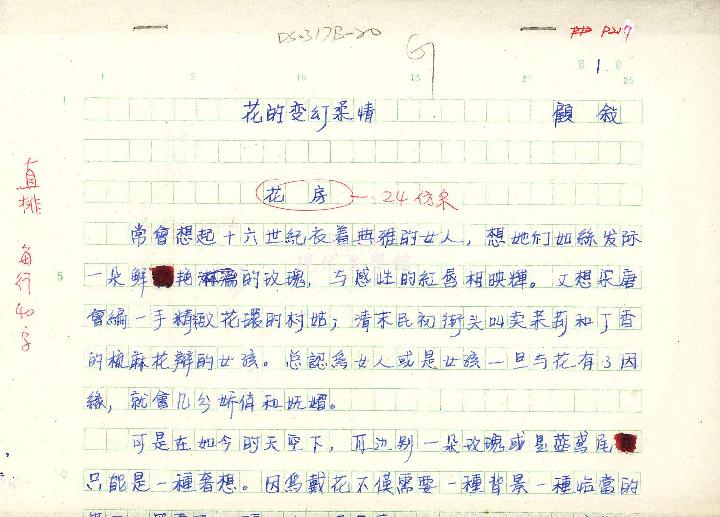 DS-317B-20
P217
第1頁
1 5 10 15 20 25
花的变幻柔情 顧敍
花房 24仿宋
直排 每行40字
常會想起十六世紀衣着典雅的女人，想她们如絲发际
一朵鲜艳淋漓的玫瑰，与感性的紅唇相映輝。又想采唐
會編一手精緻花環的村姑；清末民初街头叫卖茉莉和丁香
5
的梳麻花辮的女孩。总認為女人或是女孩一旦与花有了因
緣，就會几分娇俏和妩媚。
可是在如今的天空下，耳边别一朵玫瑰或是蓝鸢尾
只能是一種奢想。因為戴花不僅需要一種背景一種恰當的